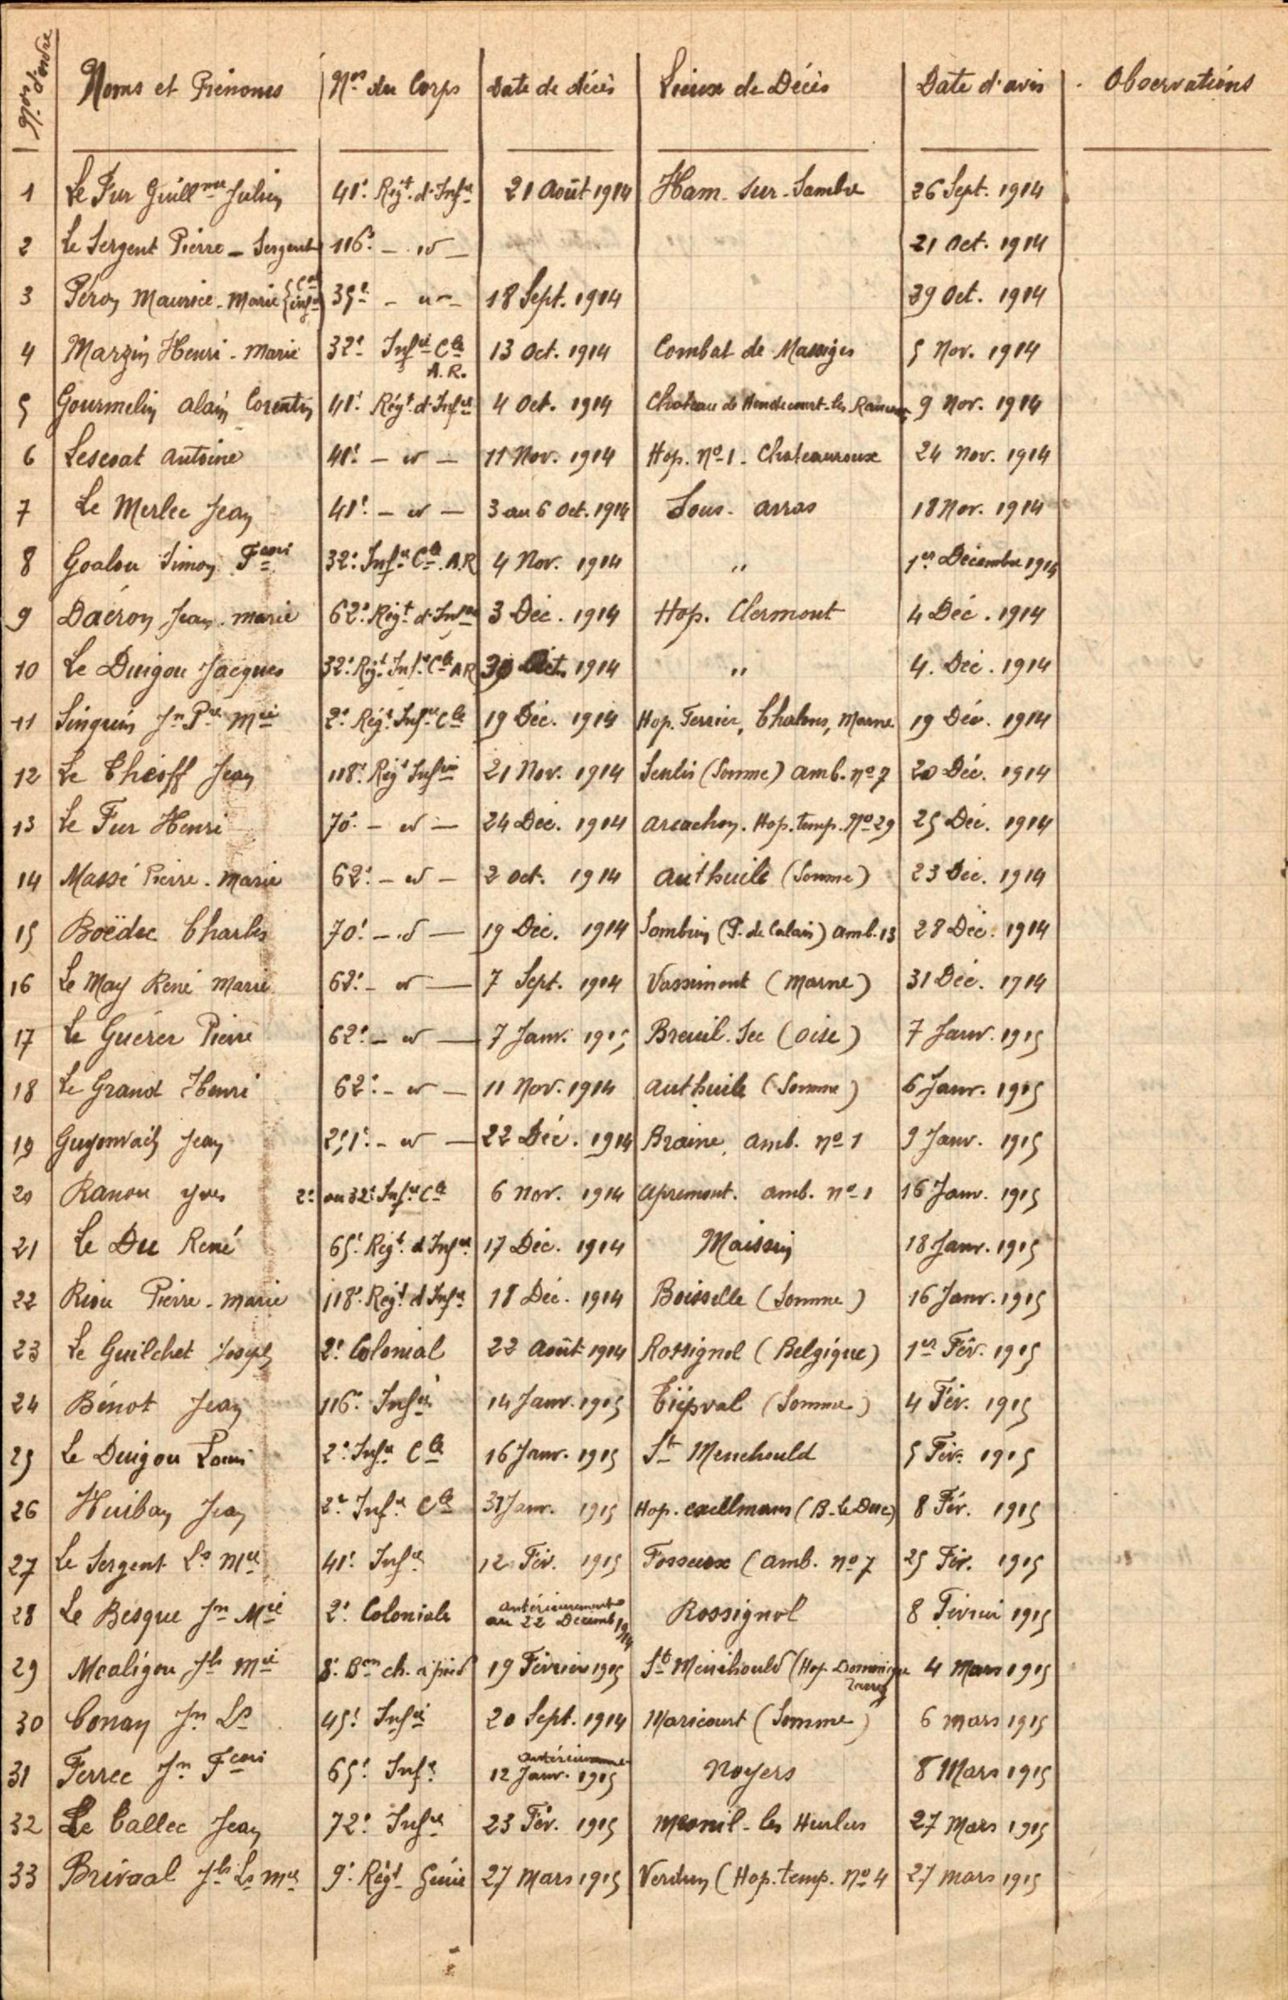 Nos d'ordre Noms et Prénoms Nos du Corps Date de décès Lieux de Décès Date d'avis Observations
1 Le Fur Guillme Julien 41e Regt d'Infie 21 Août 1914 Ham-sur-Sambre 26 Sept. 1914
2 Le Sergent Pierre - Sergent 116e - id - 21 Oct. 1914
3 Péron Maurice-Marie 35e - id - 18 Sept. 1914 29 Oct. 1914
4 Marzin Henri-Marie 32e Infie Cle A.R. 13 Oct. 1914 Combat de Massiges 5 Nov. 1914
5 Gourmelin Alain Corentin 41e Régt d'Infie 4 Oct. 1914 Chateau de Hendecourt-les-Ransart 9 Nov. 1914
6 Lescoat Antoine 41e - id - 11 Nov. 1914 Hop. No 1 - Chateauroux 24 Nov. 1914
7 Le Merlec Jean 41e - id - 3 au 6 Oct. 1914 Sous-Arras 18 Nov. 1914
8 Goalou Simon Fcois 32e Infie Cle A.R 4 Nov. 1914 " 1er Décembre 1914
9 Daéron Jean-Marie 62e Regt d'Infie 3 Déc. 1914 Hop. Clermont 4 Déc. 1914
10 Le Duigou Jacques 32e Regt Infie Cle AR 30 Oct. 1914 " 4. Déc. 1914
11 Sinquin Jn Pre Mie 2e Régt Infie Cle 19 Déc. 1914 Hop. Ferrier, Chalons, Marne 19 Déc. 1914
12 Le Theoff Jean 118e Regt Infie 21 Nov. 1914 Senlis (Somme) amb. no 7 20 Déc. 1914
13 Le Fur Henri 70e - id - 24 Déc. 1914 Arcachon. Hop. temp. No 29 25 Déc. 1914
14 Massé Pierre-Marie 62e - id - 2 Oct. 1914 Authuile (Somme) 23 Déc. 1914
15 Boëdec Charles 70e - id - 19 Déc. 1914 Sombrin (P. de Calais) Amb. 13 28 Déc. 1914
16 Le May René Marie 62e - id - 7 Sept. 1914 Vassimont (Marne) 31 Déc. 1914
17 Le Guérer Pierre 62e - id - 7 Janv. 1915 Breuil-Sec (Oise) 7 Janv. 1915
18 Le Grand Henri 62e - id - 11 Nov. 1914 Authuile (Somme) 6 Janv. 1915
19 Guyonvach Jean 251e - id - 22 Déc. 1914 Braine, amb. no 1 9 Janv. 1915
20 Ranou Yves 2e ou 32e Infie Cle 6 Nov. 1914 Apremont. amb. no 1 16 Janv. 1915
21 Le Du René 65e Regt d'Infie 17 Déc. 1914 Maissin 18 Janv. 1915
22 Riou Pierre-Marie 118e Regt d'Infie 18 Déc. 1914 Boisselle (Somme) 16 Janv. 1915
23 Le Guilchet Joseph 2e Colonial 22 Août 1914 Rossignol (Belgique) 1er Fév. 1915
24 Bénot Jean 116e Infie 14 Janv. 1915 Tiépval (Somme) 4 Fév. 1915
25 Le Duigou Louis 2e Infie Cle 16 Janv. 1915 St Menehould 5 Fév. 1915
26 Huiban Jean 2e Infie Cle 31 Janv. 1915 Hop. Exellmans (B-Le Duc) 8 Fév. 1915
27 Le Sergent Ls Mie 41e Infie 12 Fév. 1915 Fosseux (amb. no 7 25 Fév. 1915
28 Le Besque Jn Mie 2e Coloniale antérieurement au 22 Décemb 1914 Rossignol 8 Février 1915
29 Mealigou Jh Mie 8e Bon ch. à pied 19 Février 1915 St Menehould (Hop. Dominique 4 Mars 1915
30 Conan Jn Ls 45e Infie 20 Sept. 1914 Maricourt (Somme) 6 Mars 1915
31 Ferrec Jn Fcois 65e Infie antérieurement 12 Janv. 1915 Noyers 8 Mars 1915
32 Le Callec Jean 72e Infie 23 Fév. 1915 Mesnil-les Hurlus 27 Mars 1915
33 Brivoal Jh Ls Mie 9e Régt Génie 27 Mars 1915 Verdun (Hop. temp. No 4 27 Mars 1915